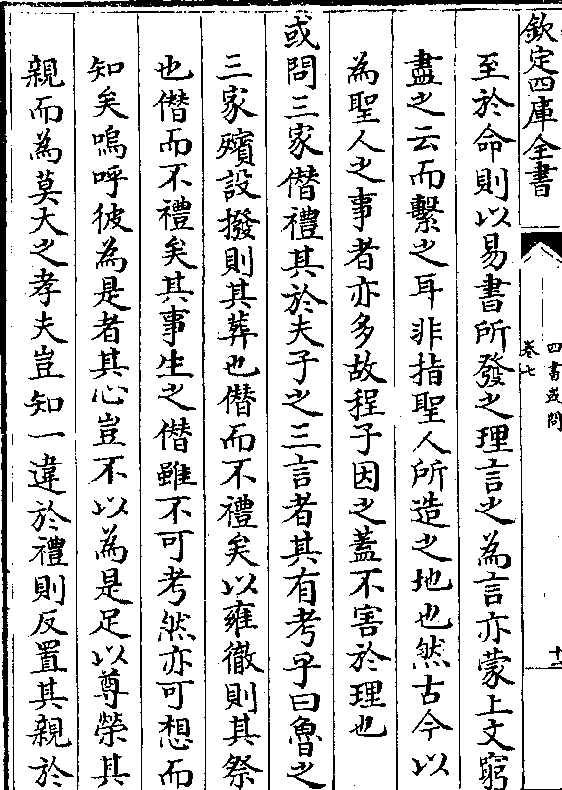 欽定四庫全書
四書或問
卷七
至於命則以易書所發之理言之為言亦蒙上文窮
盡之云而繫之耳非指聖人所造之地也然古今以
為聖人之事者亦多故程子因之蓋不害於理也
或問三家僣禮其於夫子之三言者其有考乎曰魯之
三家殯設撥則其葬也僣而不禮矣以雍徹則其祭
也僣而不禮矣其事生之僣雖不可考然亦可想而
知矣嗚呼彼為是者其心豈不以為是足以尊榮其
親而為莫大之孝夫豈知一違於禮則反置其親於